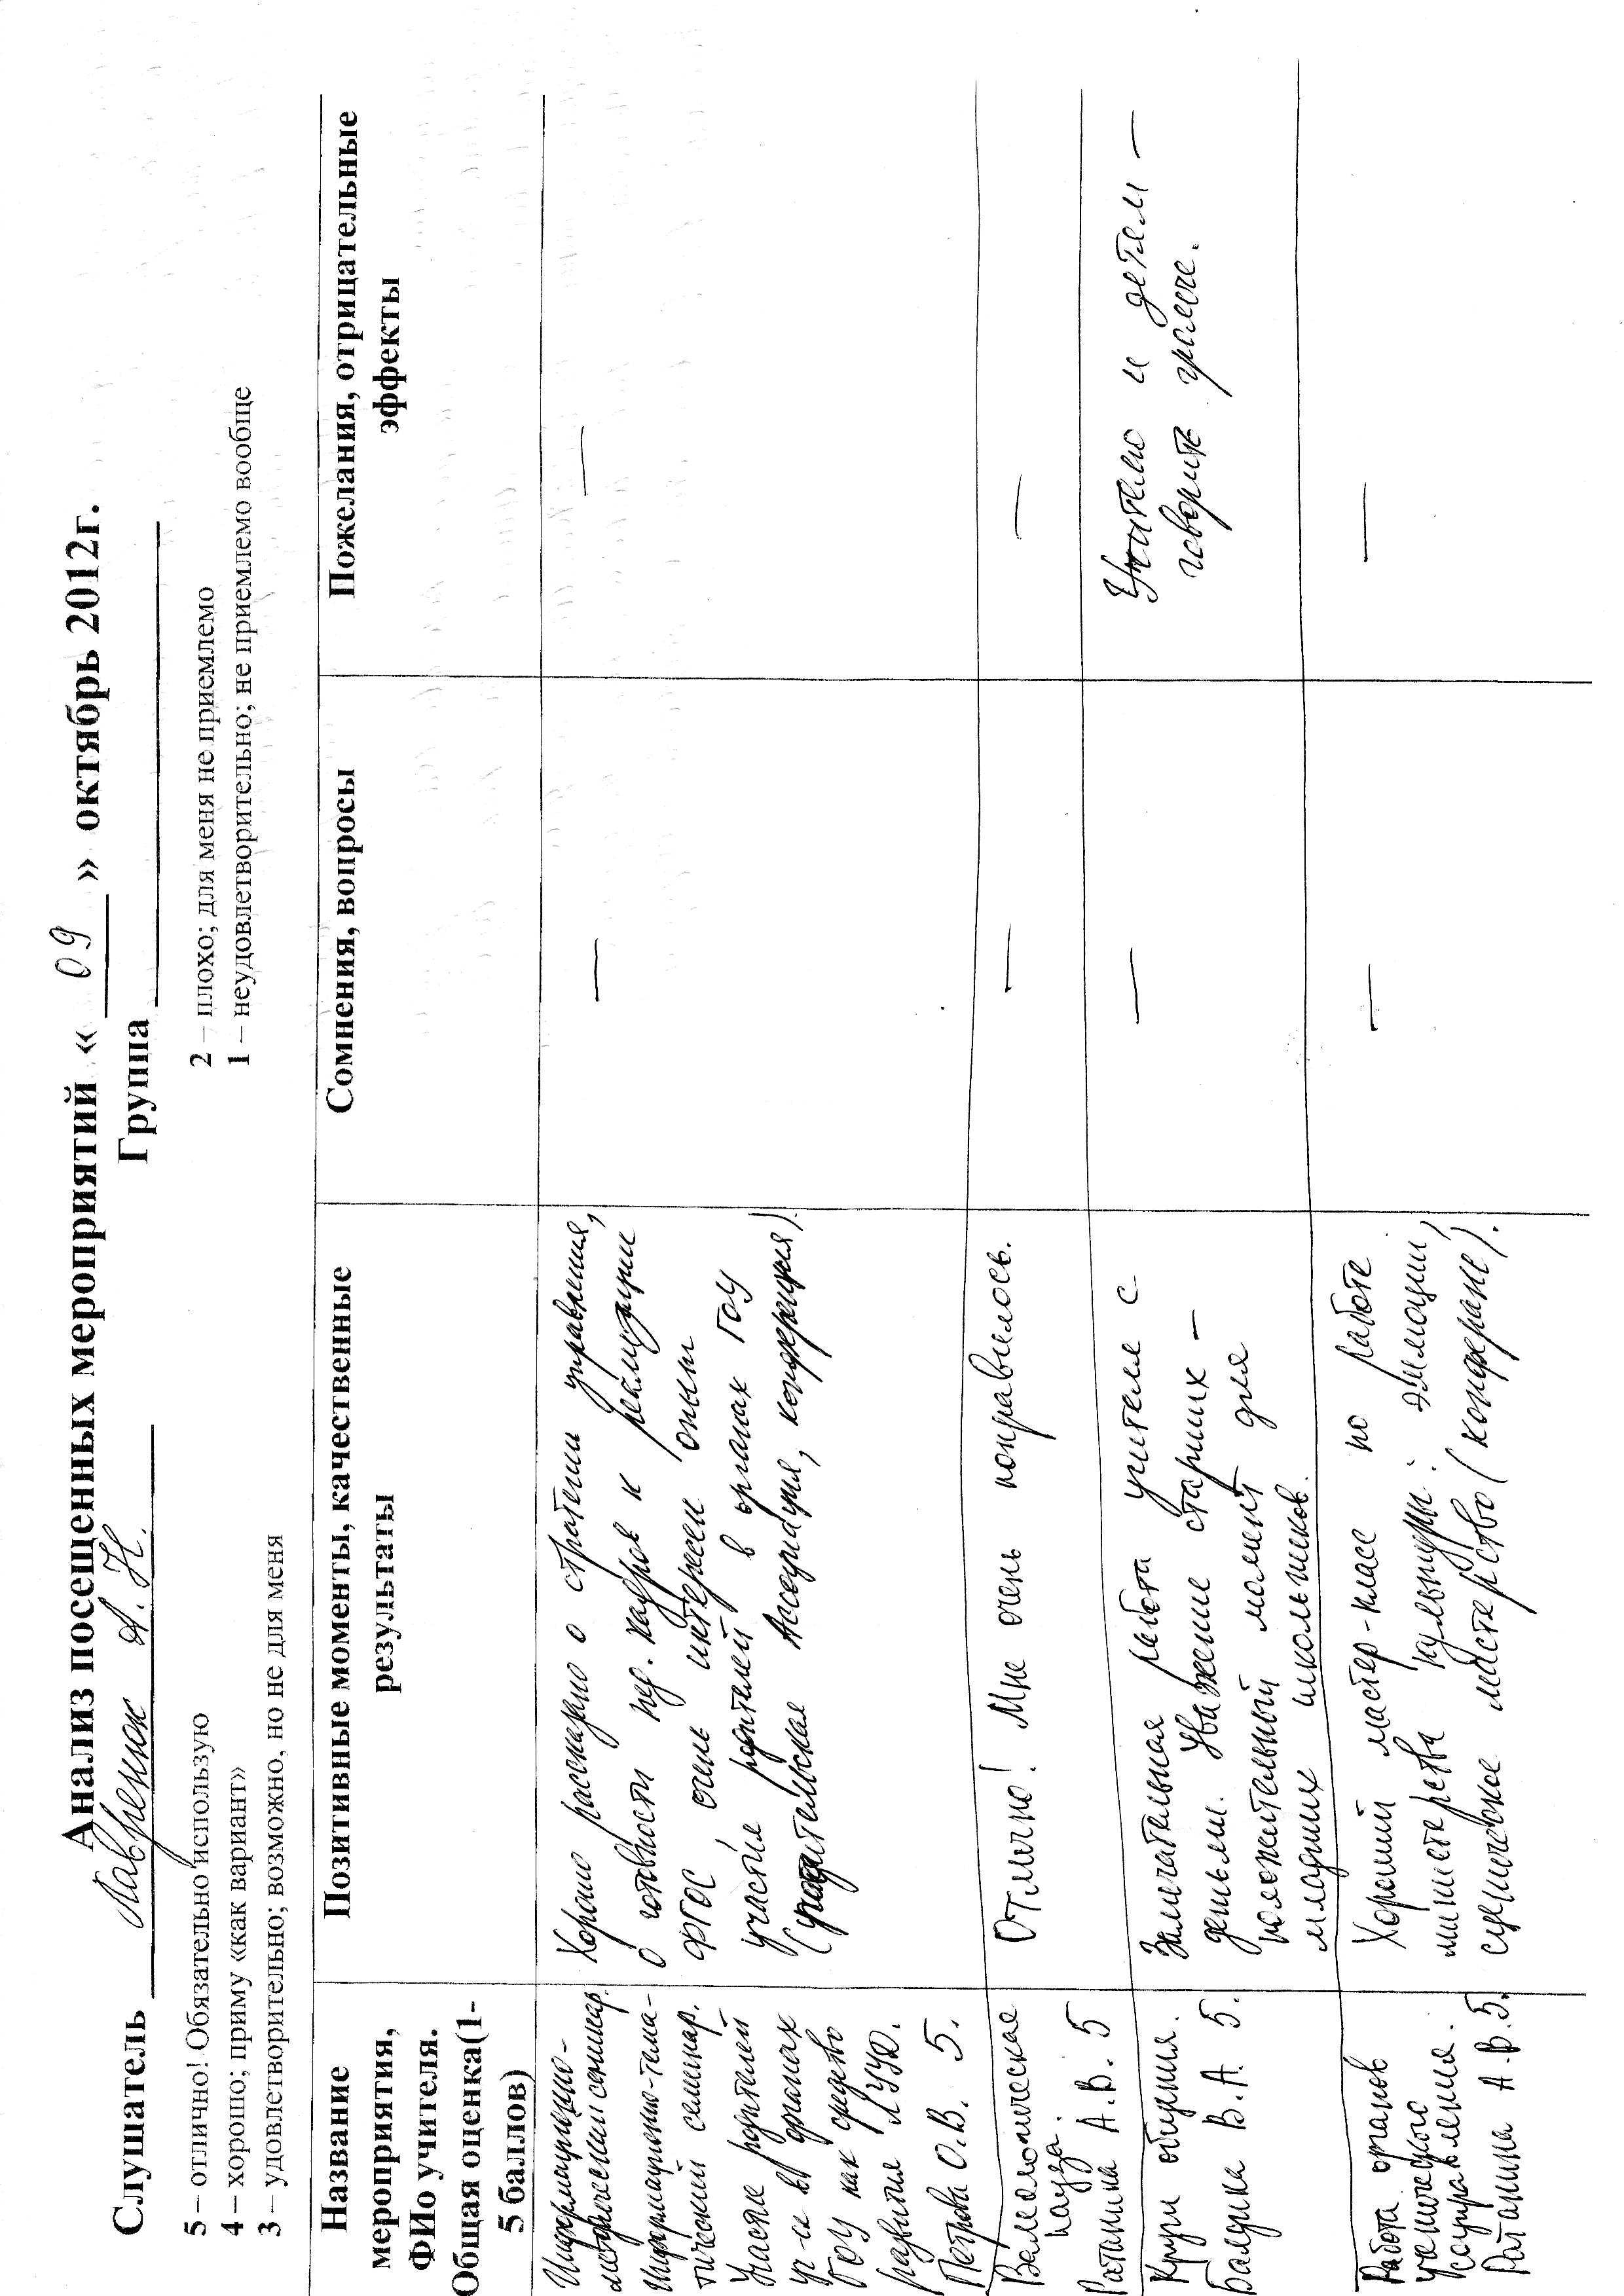 Анализ посещенных мероприятий « 09 » октябрь 2012г.
Слушатель Лавренюк А. Н. Группа
5 – отлично! Обязательно использую
4 – хорошо; приму «как вариант»
3 – удовлетворительно; возможно, но не для меня
2 – плохо; для меня не приемлемо
1 – неудовлетворительно; не приемлемо вообще
Название
мероприятия,
ФИо учителя.
Общая оценка(1-
5 баллов)
Позитивные моменты, качественные
результаты
Сомнения, вопросы
Пожелания, отрицательные
эффекты
Информационно-
методический семинар.
Информационно-тема-
тический семинар.
Участие родителей
уч-ся в органах
ГОУ как средство
развития ЛУУД.
Петрова О.В. 5.
Хорошо рассказано о стратегии управления,
о готовности пед. кадров к реализации
ФГОС очень интересен опыт
участия родителей в органах ГОУ
(родительская Ассоциация, конференция).
—
—
Валеологическая
пауза.
Ратанина А.В. 5
Отлично! Мне очень понравилось.
—
—
Круги общения.
Балдина В.А. 5.
Замечательная работа учителя с
детьми. Уважение старших –
положительный момент для
младших школьников.
—
Учителю и детям –
говорите громче.
Работа органов
ученического
самоуправления.
Ратанина А.В. 5.
Хороший мастер-класс по работе
министерства культуры: эмоции,
сценическое мастерство (конферанс).
—
—